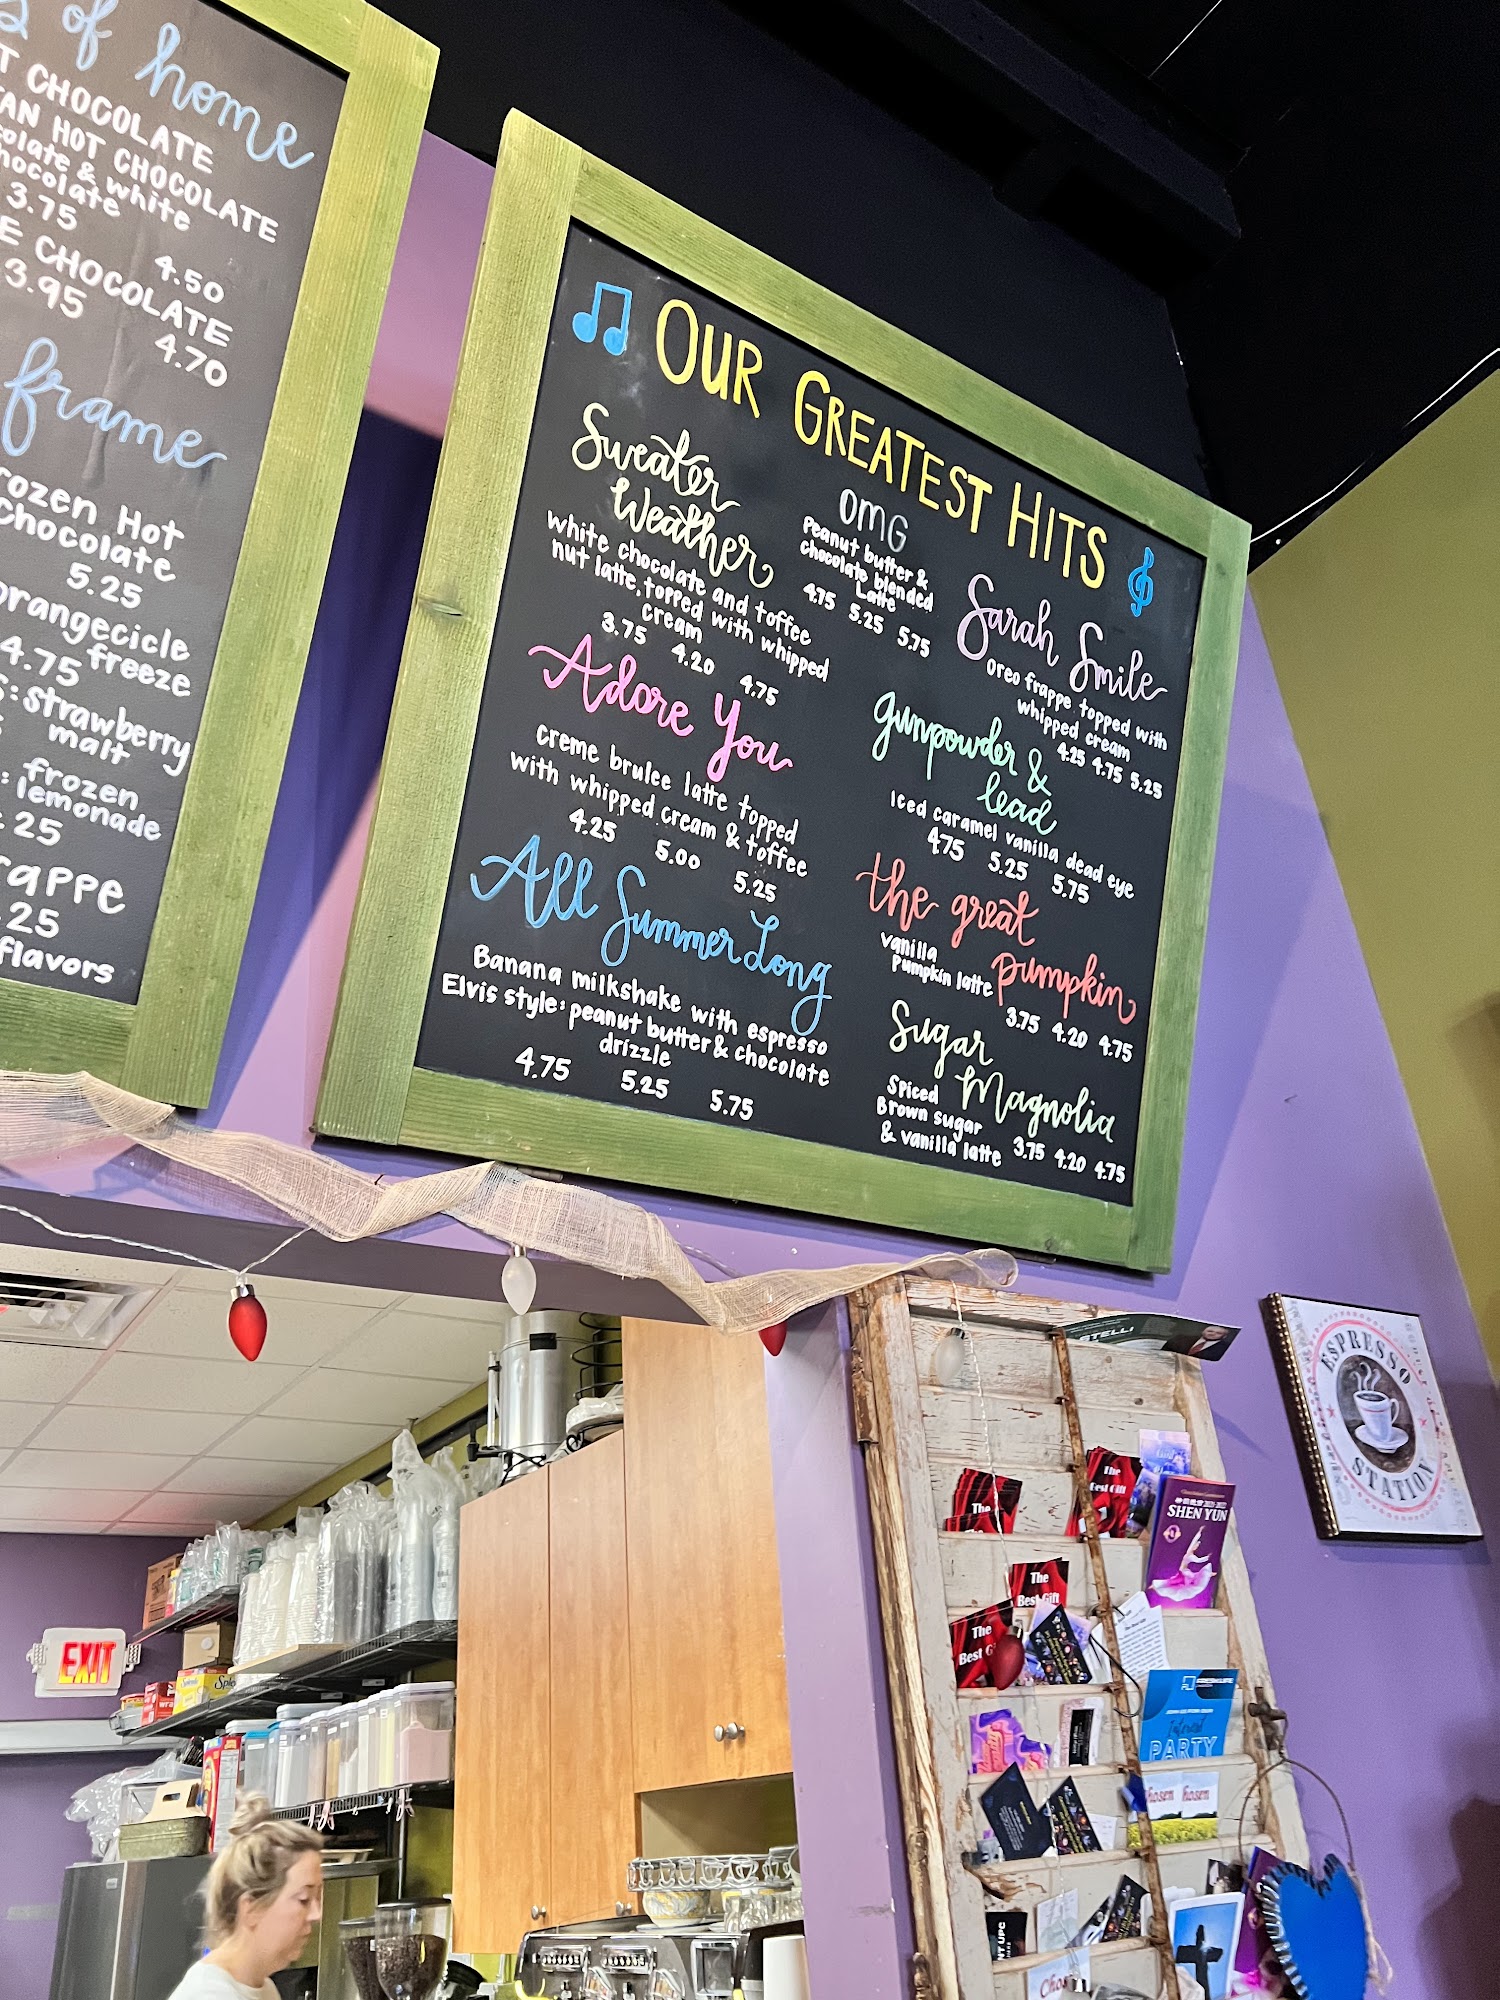 of home
CHOCOLATE
HOT CHOCOLATE
& white
3.75
4.50
CHOCOLATE
3.95
4.70
frame
Hot
chocolate
5.25
freeze
4.75
strawberry
malt
frozen
lemonade
flavors
OUR GREATEST HITS
Sweater
Weather
white chocolate and toffee
nut latte, topped with whipped
cream
3.75 4.20 4.75
Adore You
Creme brulee latte topped
with whipped cream & toffee
4.25 5.00 5.25
All Summer Long
Banana milkshake with espresso
Elvis style: peanut butter & chocolate
drizzle
4.75 5.25 5.75
OMG
Peanut butter &
chocolate blended
Latte
4.75 5.25 5.75
Sarah Smile
Oreo frappe topped with
whipped cream
4.25 4.75 5.25
gunpowder &
lead
Iced caramel vanilla dead eye
4.75 5.25 5.75
the great
pumpkin
vanilla
Pumpkin latte
3.75 4.20 4.75
Sugar
Magnolia
Spiced
Brown sugar
& vanilla latte
3.75 4.20 4.75
ESPRESSO
STATION
EXIT
The
The
Best Gift
The
Best Gift
The
Best G
SHEN YUN
FRESH LIFE
PARTY